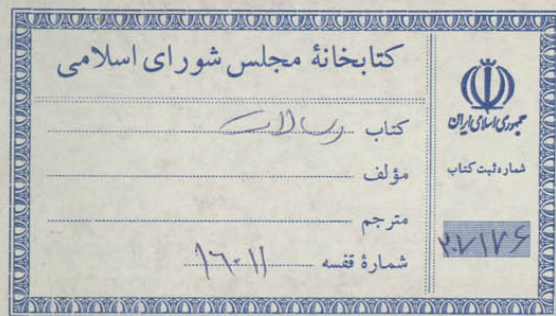 کتابخانهٔ مجلس شورای اسلامی
کتاب رسالات
مؤلف
مترجم
شمارهٔ قفسه ۱۶۰۱۱
جمهوری اسلامی ایران
شماره ثبت کتاب
۲۰۷۱۷۶